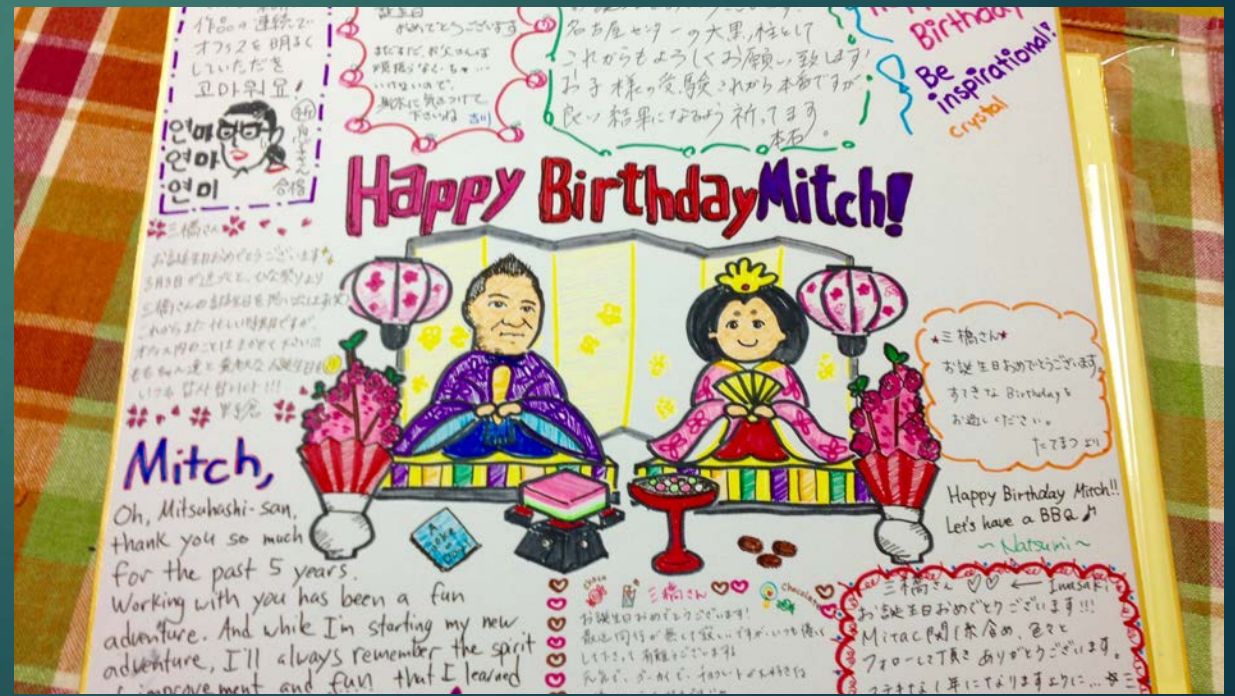 作品の連続で
オフィスを明るく
していただき
고마워요!
연마
연마
연미
合格
おめでとうございます
まだまだ、お父さんは
頑張らなくちゃ…
いけないので、
無木に気をつけて
下さいね 吉川
名古屋センターの大黒柱として
これからもよろしくお願い致します
お子様の受験これから本番ですが
良い結果になるよう祈ってます
本石。
Birthday
Be
inspirational!
crystal
Happy Birthday Mitch!
三橋さん
お誕生日おめでとうございます
3月3日が近づくと、ひな祭りより
三橋さんの誕生日を思い出します
これからまだ忙しい時期ですが
オフィス内のことはまかせて下さい!!
Mitch,
Oh, Mitsuhashi-san,
thank you so much
for the past 5 years.
Working with you has been a fun
adventure. And while I'm starting my new
adventure, I'll always remember the spirit
of improvement and fun that I learned
★三橋さん★
お誕生日おめでとうございます。
すてきな Birthdayを
お過しください。
たてまつより
Happy Birthday Mitch!!
Let's have a BBQ♪
~Natsumi~
choco
三橋さん ♡♡
chocolate
お誕生日おめでとうございます!
最近同行が無くて寂しいですが、いつも優しく
して下さって有難うございます
三橋さん ♡♡ ← Iwasaki
お誕生日おめでとうございます!!!
Mitac関係含め、色々と
フォローして頂きありがとうございます。
ステキな1年になりますように…☆ミ